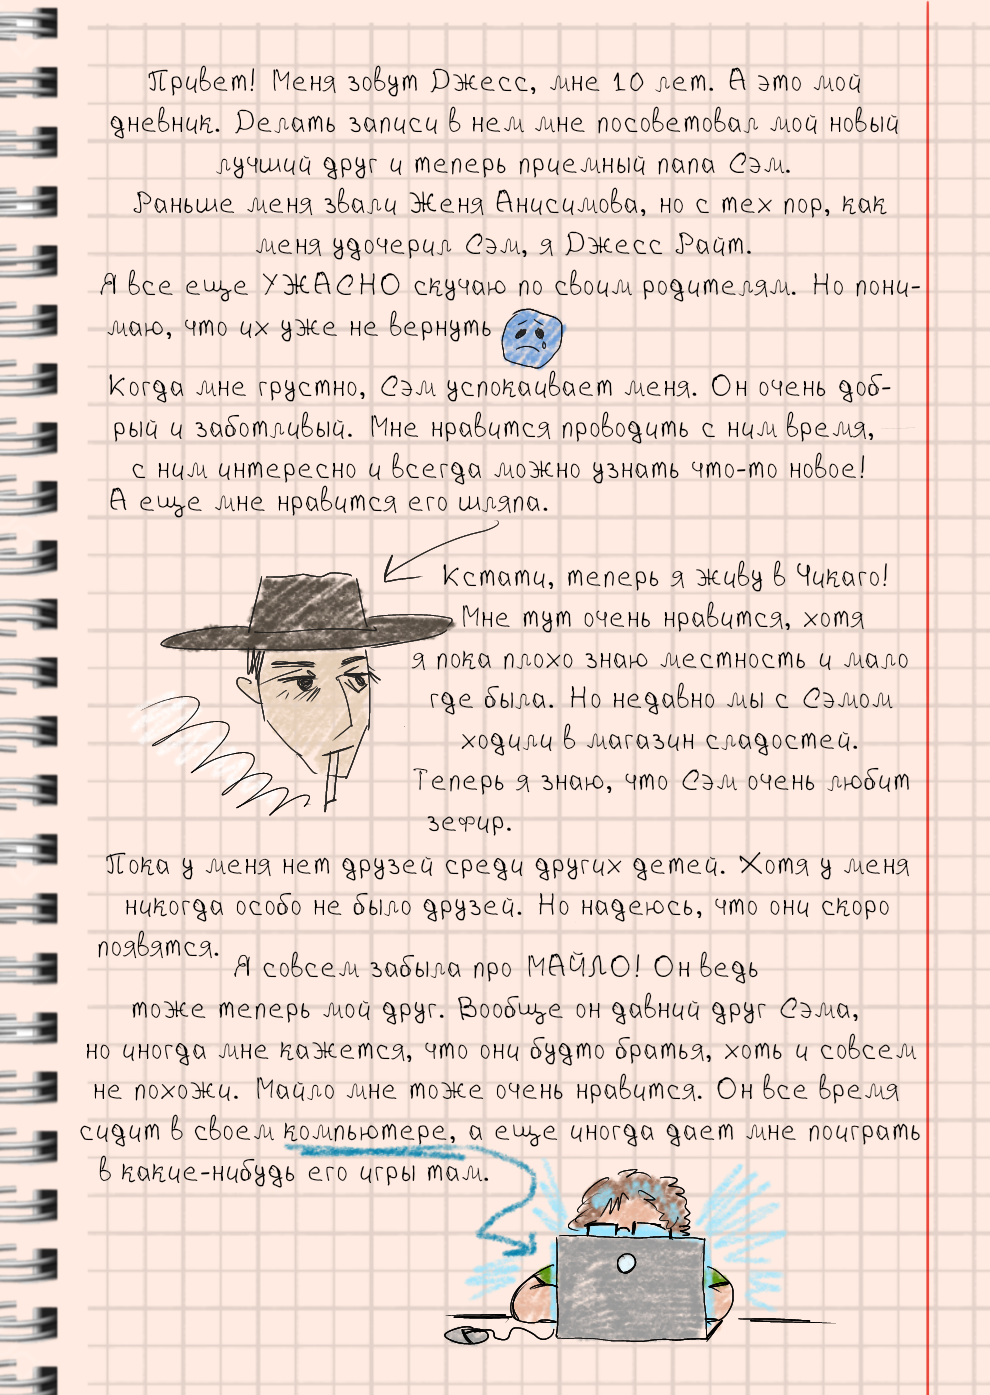 Привет! Меня зовут Джесс, мне 10 лет. А это мой
дневник. Делать записи в нем мне посоветовал мой новый
лучший друг и теперь приемный папа Сэм.
Раньше меня звали Женя Анисимова, но с тех пор, как
меня удочерил Сэм, я Джесс Райт.
Я все еще УЖАСНО скучаю по своим родителям. Но пони-
маю, что их уже не вернуть
Когда мне грустно, Сэм успокаивает меня. Он очень доб-
рый и заботливый. Мне нравится проводить с ним время,
с ним интересно и всегда можно узнать что-то новое!
А еще мне нравится его шляпа.
Кстати, теперь я живу в Чикаго!
Мне тут очень нравится, хотя
я пока плохо знаю местность и мало
где была. Но недавно мы с Сэмом
ходили в магазин сладостей.
Теперь я знаю, что Сэм очень любит
зефир.
Пока у меня нет друзей среди других детей. Хотя у меня
никогда особо не было друзей. Но надеюсь, что они скоро
появятся.
Я совсем забыла про МАЙЛО! Он ведь
тоже теперь мой друг. Вообще он давний друг Сэма,
но иногда мне кажется, что они будто братья, хоть и совсем
не похожи. Майло мне тоже очень нравится. Он все время
сидит в своем компьютере, а еще иногда дает мне поиграть
в какие-нибудь его игры там.